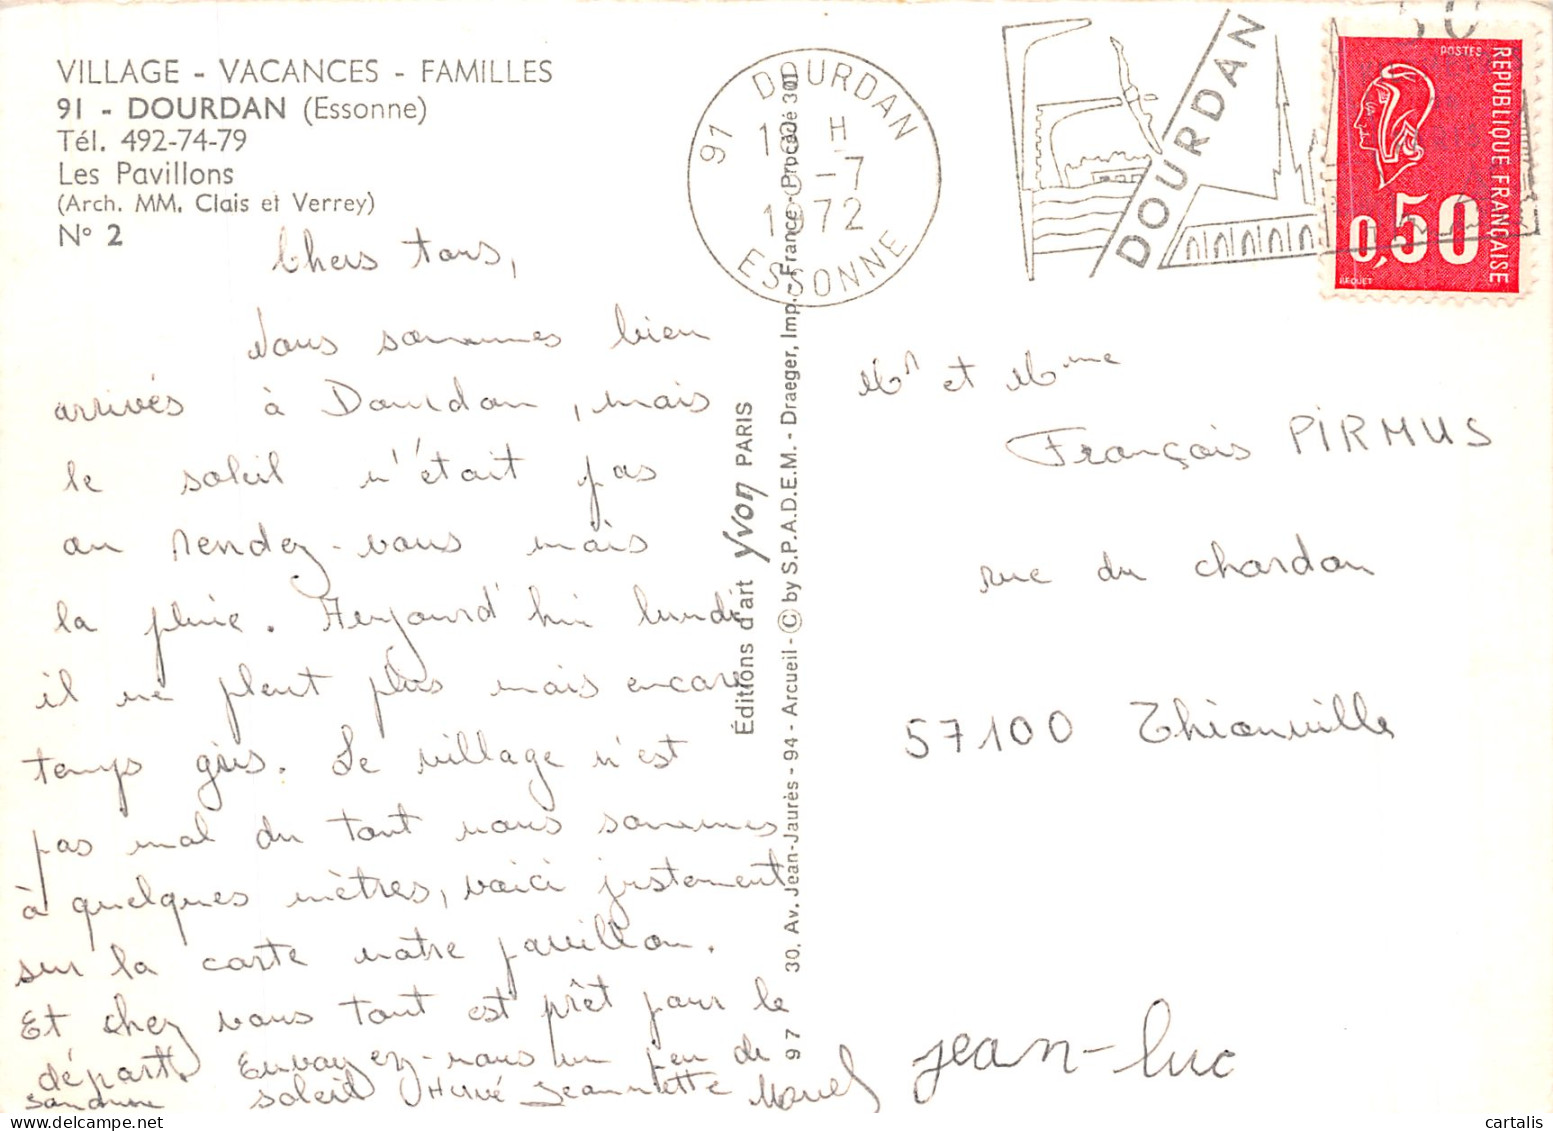 VILLAGE - VACANCES - FAMILLES
91 - DOURDAN (Essonne)
Tél. 492-74-79
Les Pavillons
(Arch. MM. Clais et Verrey)
N° 2
Chers tous,
Nous sommes bien
arrivés à Dourdan, mais
le soleil n'était pas
au rendez-vous mais
la pluie. Aujourd'hui lundi
il ne pleut plus mais encore
temps gris. Le village n'est
pas mal du tout nous sommes
à quelques mètres, voici justement
sur la carte notre pavillon.
Et chez vous tout est prêt pour le
départ. Envoyez-nous un peu de
soleil Hervé Jeannette Marcel
Sandrine
jean-luc
Éditions d'art Yvon PARIS
30, Av. Jean-Jaurès - 94 - Arcueil - © by S.P.A.D.E.M. - Draeger, Imp. - France - Procédé 301
97
91 DOURDAN
H
-7
1972
ESSONNE
DOURDAN
POSTES
REPUBLIQUE FRANÇAISE
0,50
BEQUET
Mr et Mme
François PIRMUS
rue du chardon
57100 Thionville
cartalis
delcampe.net